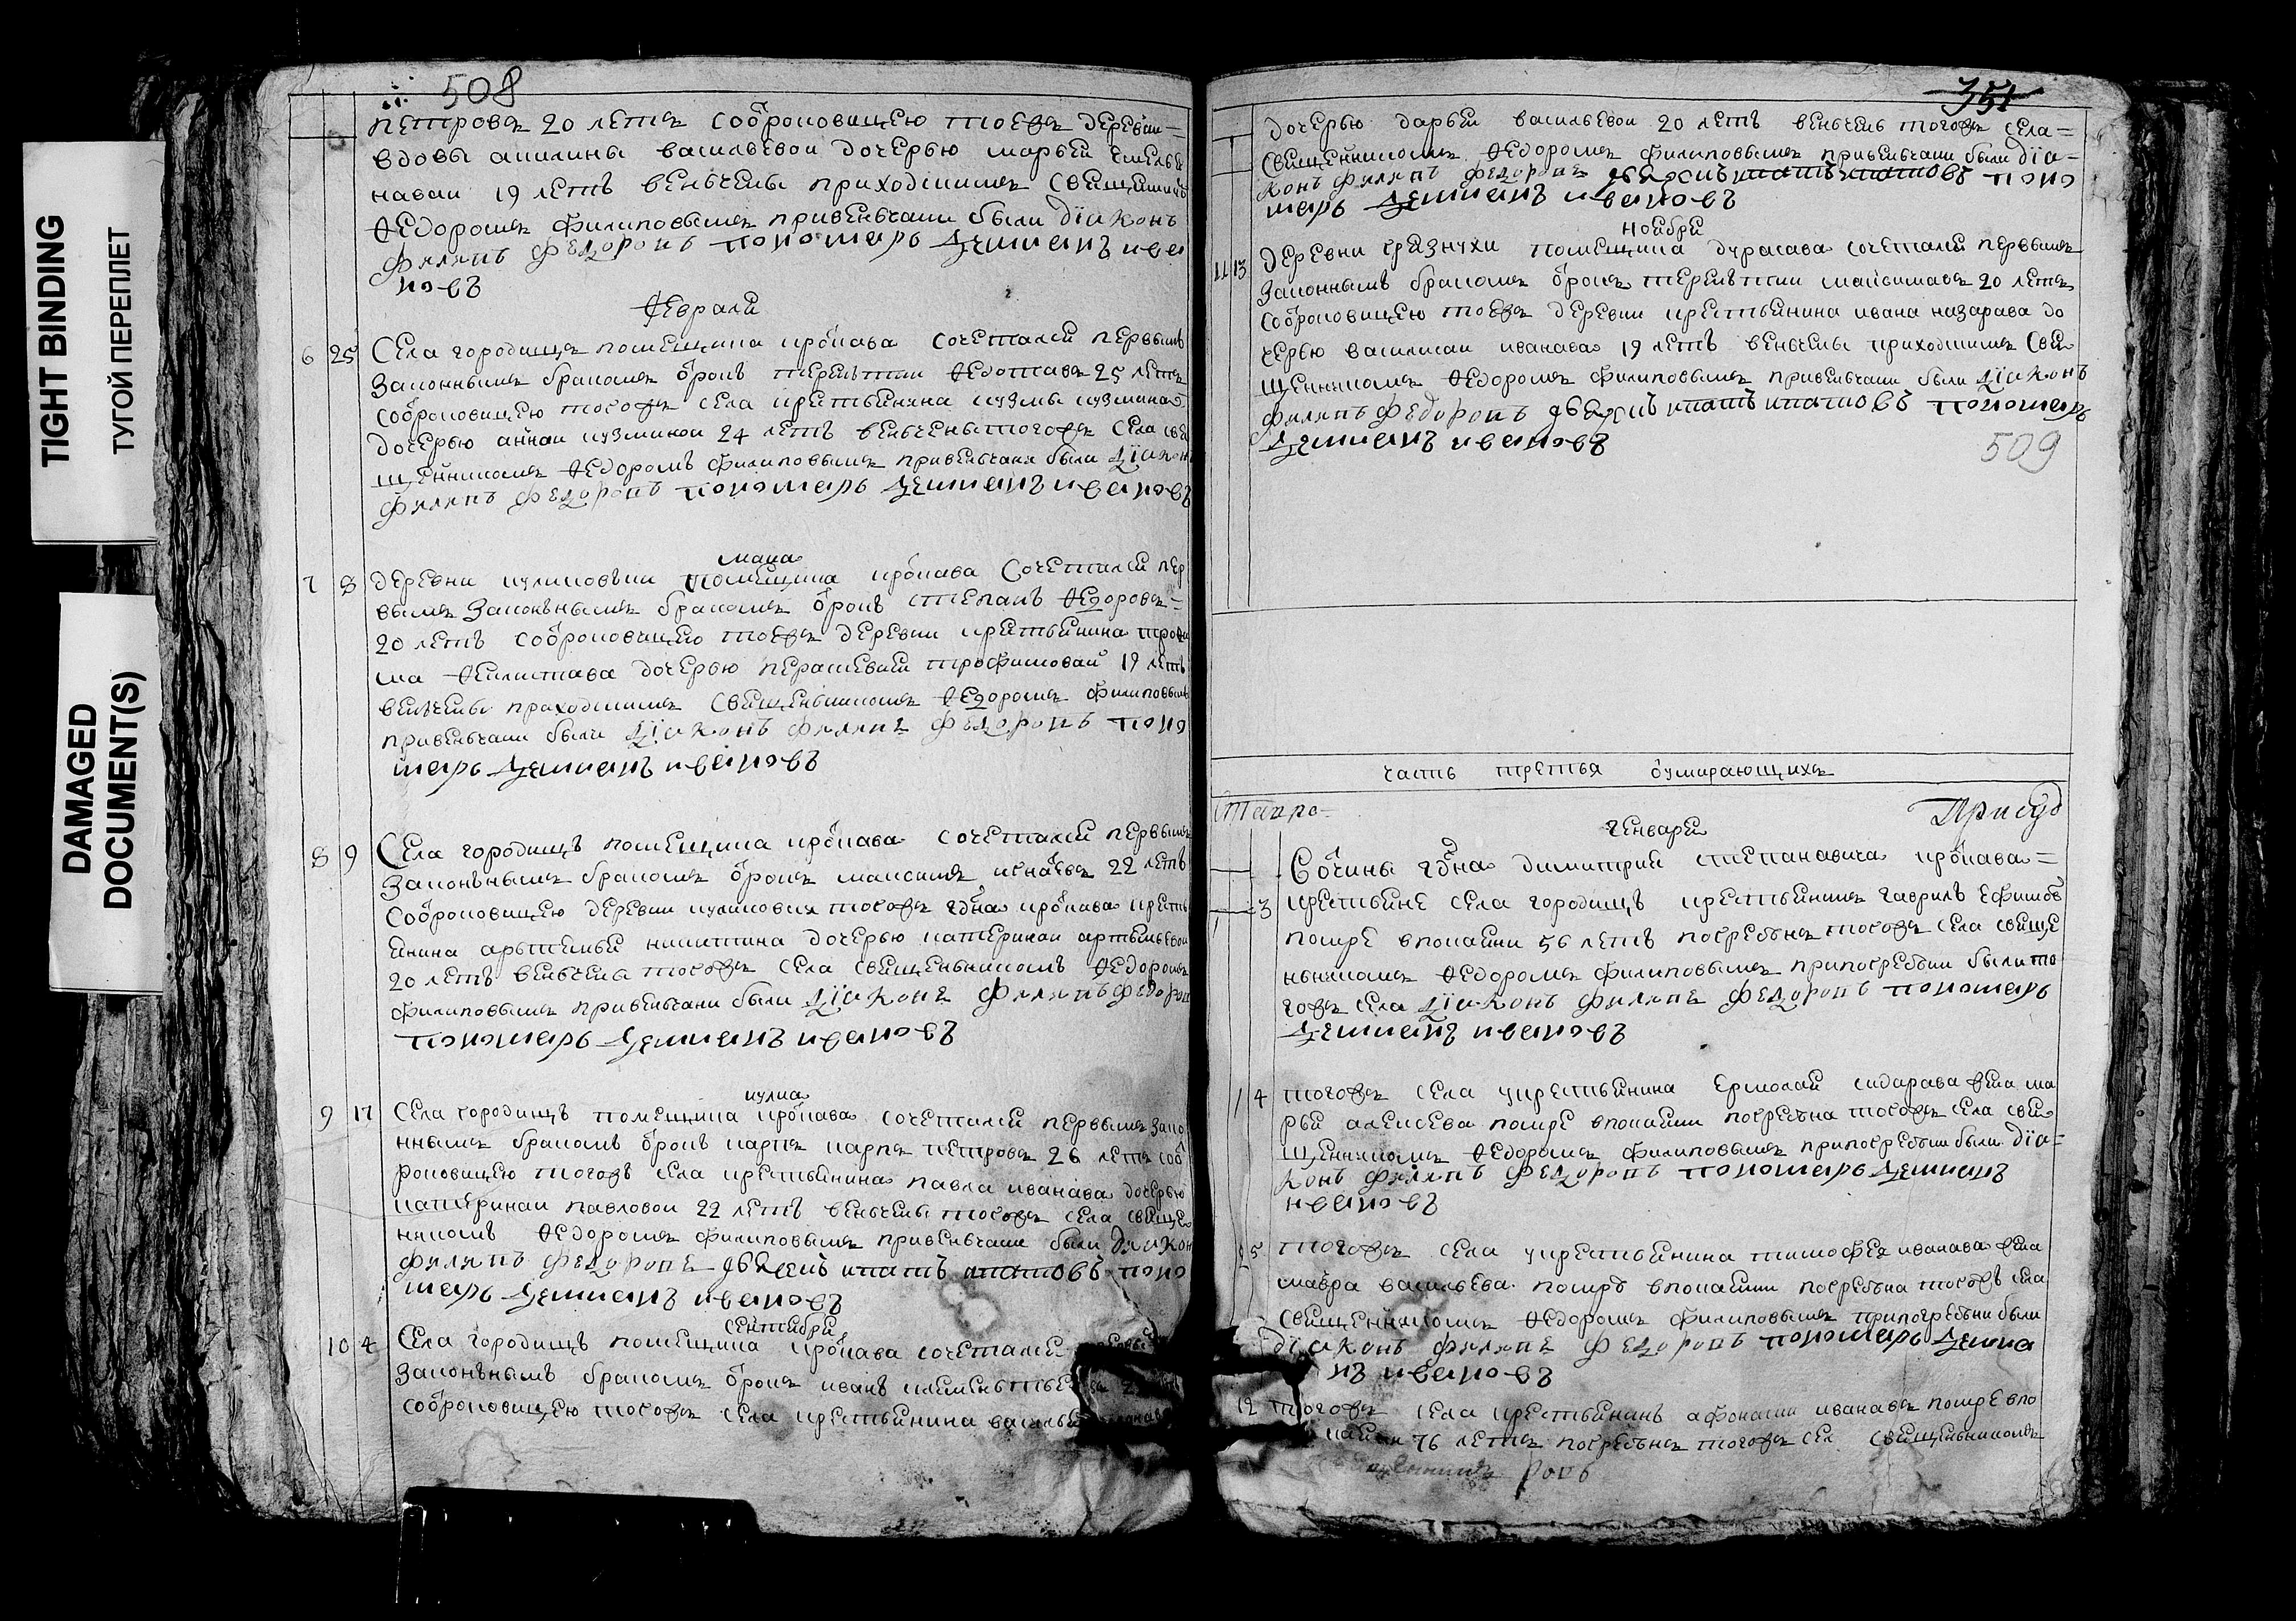 TIGHT BINDING
ТУГОЙ ПЕРЕПЛЕТ
DAMAGED
DOCUMENT(S)
508
петровъ 20 летъ соотроковицею тоежъ деревни=
вдовы акилины васильевои дочерью марьеи емелья
наваи 19 летъ веньчены приходскимъ свяще
ѳедоромъ филиповымъ привеньчани были дїаконъ
филипъ федоровъ пономарь демианъ ива
новъ
ѳевраля
6 25 Села городищъ помещика сочетался первымъ
законнымъ бракомъ отрокъ терентии ѳедотавъ 25 летъ
соотроковицею тогожъ села крестьянина кузмы кузмина
дочерью аннаи кузминои 24 летъ веньчены тогожъ села свя
щенникомъ ѳедоромъ филиповымъ привеньчани были дїакон
филипъ федоровъ пономарь демианъ ивановъ
маиа
7 8 деревни куликовки помещика сочетался пер
вымъ законънымъ бракомъ отрокъ степанъ ѳедоровъ=
20 летъ соотроковицею тоежъ деревни крестьянина троѳи
ма дочерью перасковеи трофимоваи 19 летъ
веньчены приходскимъ священьникомъ ѳедоромъ филиповымъ
привеньчани были дїаконъ филипъ федоровъ поно
марь демианъ ивановъ
8 9 Села городищъ помещика сочетался первымъ
законънымъ бракомъ отрокъ максимъ 22 летъ
соотроковицею деревни куликовки тогожъ гдна крсть
янина никитина дочерью катеринаи артемьевои
20 летъ веньчены тогожъ села священьникомъ ѳедоромъ
филиповымъ привеньчани были дїаконъ филипъ федоров
пономарь демианъ ивановъ
иулиа
9 17 Села городищъ помещика сочетался первымъ зако
ннымъ бракомъ отрокъ карпъ карпъ петровъ 26 летъ соот
роковицею тогожъ села крестьянина павла иванава дочерью
катеринаи павловои 22 летъ веньчены тогожъ села свяще
нникомъ ѳедоромъ филиповымъ привеньчани были дїакон
филипъ федоровъ поно
марь демианъ ивановъ
сентября
10 4 Села городищъ помещика сочетался первы
законънымъ бракомъ отрокъ иванъ
соотроковицею тогожъ села крестьянина василья
351
дочерью дарьеи васильевои 20 летъ веньчены тогожъ села=
священникомъ ѳедоромъ филиповымъ привеньчани были дїа=
конъ филипъ федоровъ поно
марь демианъ ивановъ
ноября
11 13 деревни грязнухи помещика дурасава сочетался первымъ
законнымъ бракомъ отрокъ терентии 20 летъ
соотроковицею тоежъ деревни крестьянина ивана назарава до
черью василисаи иванава 19 летъ веньчены приходскимъ свя
щенникомъ ѳедоромъ филиповымъ привеньчани были дїаконъ
филипъ федоровъ пономарь
демианъ ивановъ
509
часть третья оумирающихъ
Присуд
генваря
вочины гдна димитрия степанавича
3 крестьяне села городищъ крестьянинъ гаврилъ ефимов
помре впокаяни 56 летъ погребенъ тогожъ села свяще
ньникомъ ѳедоромъ филиповымъ припогребении были то
гожъ села дїаконъ филипъ федоровъ пономарь
демианъ ивановъ
4 тогожъ села укрестьянина ермолая сидарава жена ма
рья алексеева помре впокаянии погребена тогожъ села свя
щенникомъ ѳедоромъ филиповымъ припогребении были дїа=
конъ филипъ федоровъ пономарь демианъ
ивановъ
5 тогожъ села укрестьянина тимофея иванава жена
мавра васильева помре впокаянии погребена тогожъ села
священникомъ ѳедоромъ филиповымъ припогребении были
дїаконъ филипъ федоровъ пономарь демиа
нъ ивановъ
12 тогожъ села крестьянинъ афонасии иванавъ помре впо
каянии 76 летъ погребенъ тогожъ сел священьникомъ
ровъ